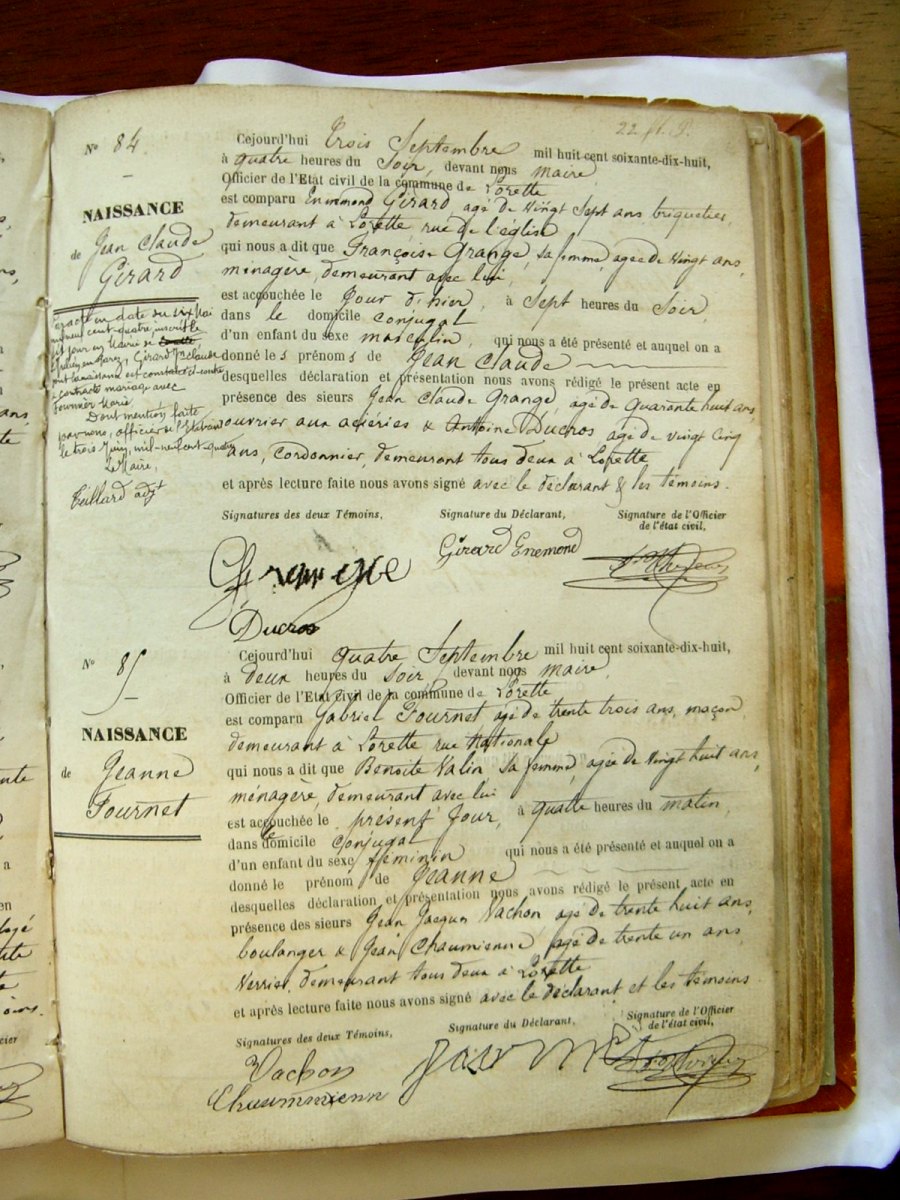 Nº 84.
NAISSANCE
de Jean Claude
Girard
Cejourd'hui trois Septembre mil huit cent soixante-dix-huit,
à quatre heures du Soir, devant nous Maire
Officier de l'Etat civil de la commune de Lorette
est comparu Enemond Girard agé de Vingt Sept ans briquetier,
demeurant à Lorette rue de l'église
qui nous a dit que Françoise Grange, sa femme, agée de Vingt ans,
ménagère, demeurant avec lui,
est accouchée le Jour d'hier, à Sept heures du Soir,
dans le domicile conjugal
d'un enfant du sexe masculin, qui nous a été présenté et auquel on a
donné les prénoms de Jean Claude
desquelles déclaration et présentation nous avons rédigé le présent acte en
présence des sieurs Jean Claude Grange, agé de Quarante huit ans,
ouvrier aux aciéries & Antoine Ducros, agé de vingt cinq
ans, Cordonnier, demeurant tous deux à Lorette
et après lecture faite nous avons signé avec le déclarant & les témoins.
Signatures des deux Témoins, Signature du Déclarant, Signature de l'Officier
de l'état civil,
Girard Enemond
Grange
Ducros
en date du six Mai
mil neuf cent quatre, inscrit le
dit jour en Mairie de
Girard Jn Claude
dont la naissance est constatée ci-contre
a contracté mariage avec
Fournier Marie.
Dont mention faite
par nous, officier de l'Etat civil
le trois Juin, mil-neuf-cent-quatre
Le Maire,
Teillard adjt
Nº 85
NAISSANCE
de Jeanne
Fournet
Cejourd'hui quatre Septembre mil huit cent soixante-dix-huit,
à deux heures du Soir, devant nous Maire,
Officier de l'Etat civil de la commune de Lorette
est comparu Gabriel Fournet agé de trente trois ans, maçon
demeurant à Lorette rue Nationale
qui nous a dit que Benoite Valin, sa femme, agée de Vingt huit ans,
ménagère, demeurant avec lui
est accouchée le présent Jour, à quatre heures du matin,
dans domicile Conjugal
d'un enfant du sexe féminin qui nous a été présenté et auquel on a
donné le prénom de Jeanne
desquelles déclaration et présentation nous avons rédigé le présent acte en
présence des sieurs Jean Jacques Vachon agé de trente huit ans,
boulanger & Jean Chaumienne, agé de trente un ans
Verrier, demeurant tous deux à Lorette
et après lecture faite nous avons signé avec le déclarant et les témoins
Signatures des deux Témoins, Signature du Déclarant, Signature de l'Officier
de l'état civil,
Vachon
Chaummienn